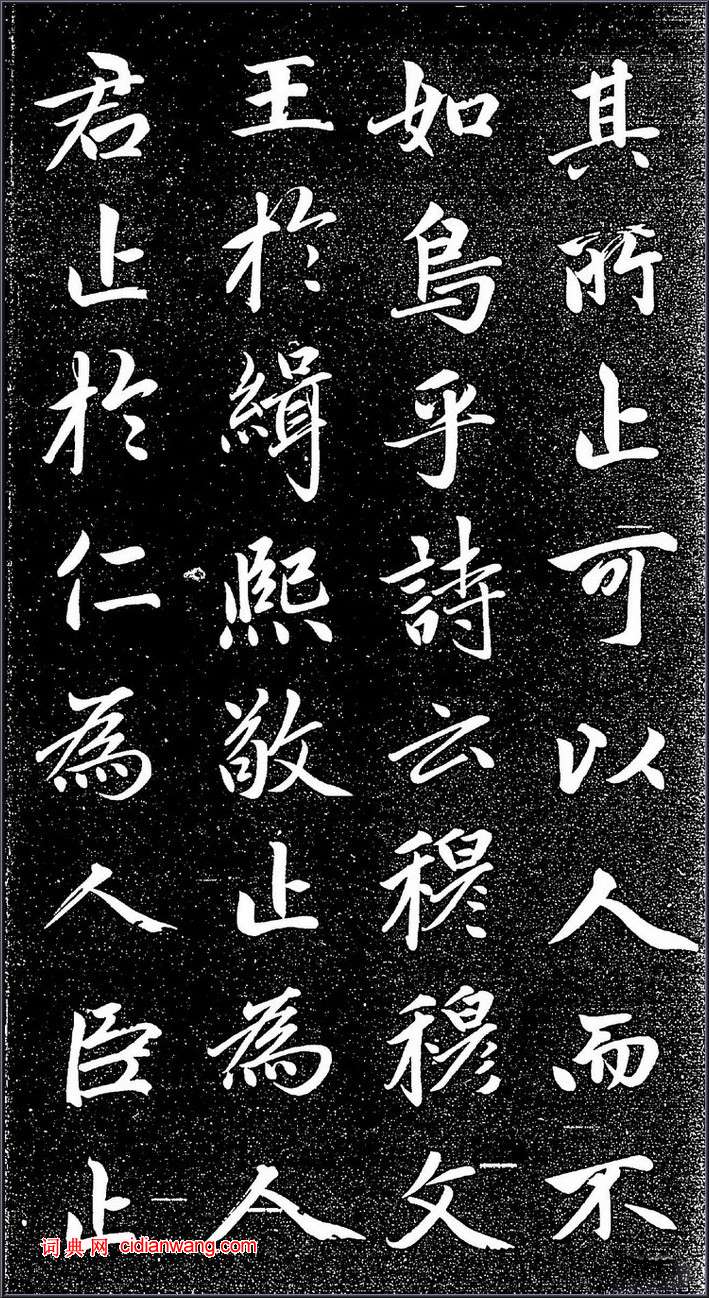 其所止可以人而不
如鳥乎詩云穆穆文
王於緝熙敬止為人
君止於仁為人臣止
词典网 cidianwang.com